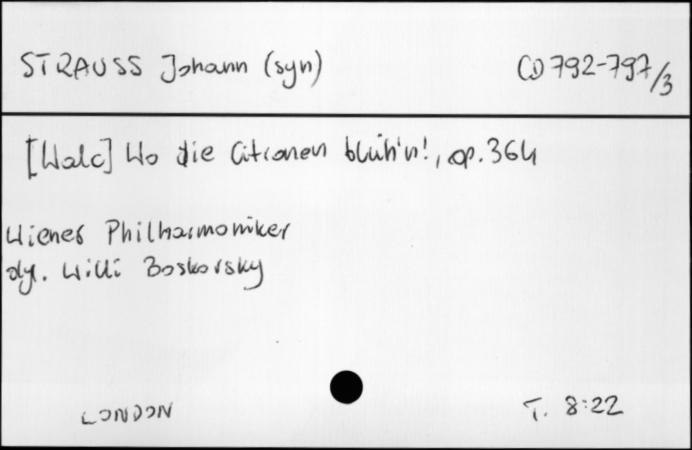 STRAUSS Johann (syn) CD 792-797/3
[Walc] Wo die Citronen blüh'n!, op. 364
Wiener Philharmoniker
dyr. Willi Boskovsky
LONDON T. 8:22